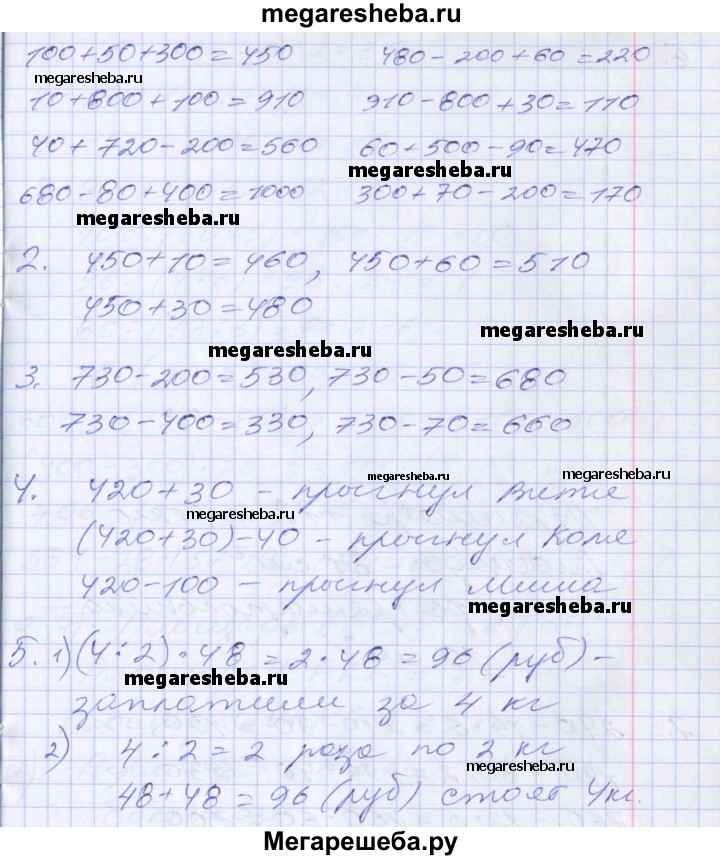 megaresheba.ru
100+50+300=450 480-200+60=220
megaresheba.ru
10+800+100=910 910-800+30=110
40+720-200=560 60+500-90=470
megaresheba.ru
680-80+400=1000 300+70-200=170
megaresheba.ru
2. 450+10=460, 450+60=510
450+30=480
megaresheba.ru
megaresheba.ru
3. 730-200=530, 730-50=680
730-400=330, 730-70=660
megaresheba.ru
megaresheba.ru
4. 420+30 - прыгнул Витя
megaresheba.ru
(420+30)-40 - прыгнул Коля
420-100 - прыгнул Миша
megaresheba.ru
5. 1) (4:2)·48=2·48=96 (руб) -
megaresheba.ru
заплатили за 4 кг
2) 4:2=2 раза по 2 кг
megaresheba.ru
48+48=96 (руб) стоят 4кг.
Мегарешеба.ру